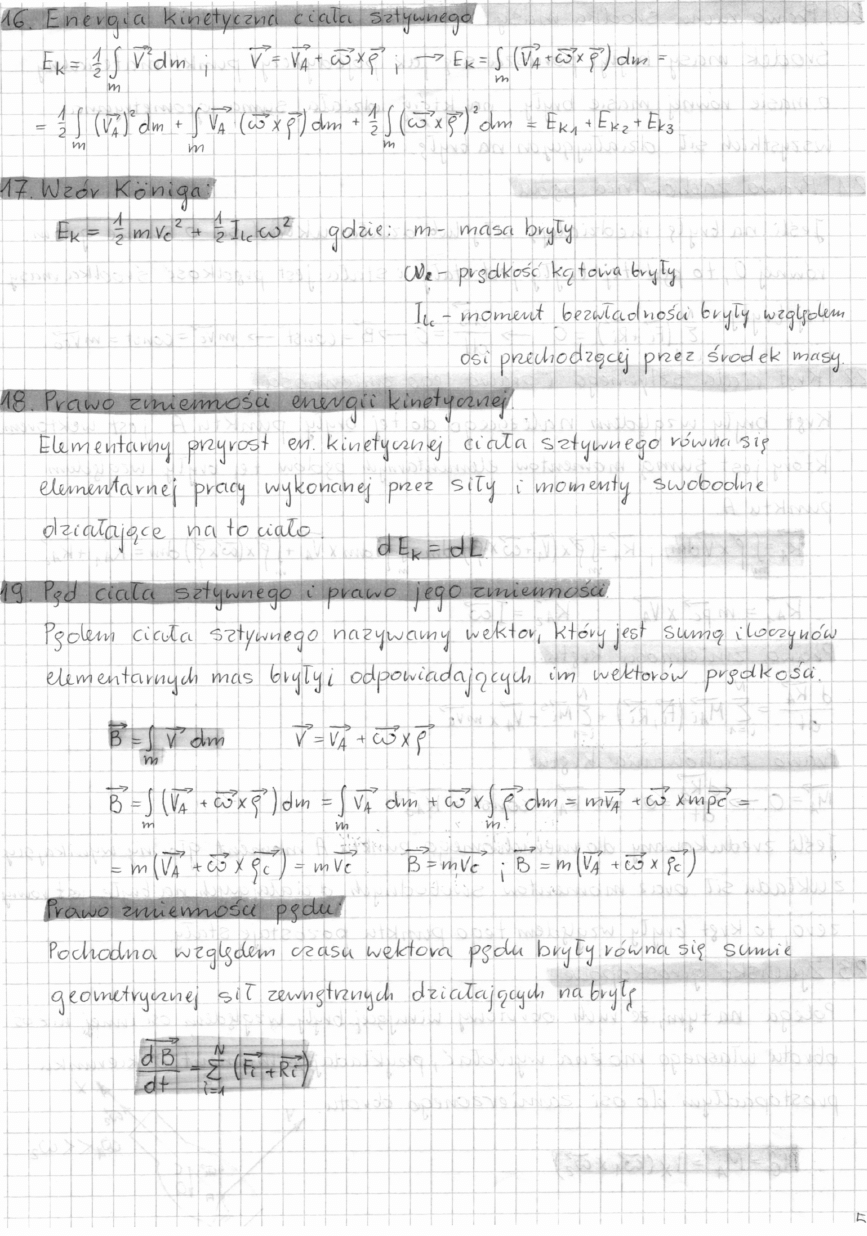 16. Energia kinetyczna ciała sztywnego
E_K = 1/2 ∫_m V⃗² dm ; V⃗ = V⃗_A + ω⃗ × ρ⃗ ; → E_K = ∫_m (V⃗_A + ω⃗ × ρ⃗) dm =
= 1/2 ∫_m (V⃗_A)² dm + ∫_m V⃗_A (ω⃗ × ρ⃗) dm + 1/2 ∫_m (ω⃗ × ρ⃗)² dm = E_K1 + E_K2 + E_K3
17. Wzór Königa:
E_K = 1/2 m v_c² + 1/2 I_lc ω² gdzie: m - masa bryły
ω - prędkość kątowa bryły
I_lc - moment bezwładności bryły względem
osi przechodzącej przez środek masy.
18. Prawo zmienności energii kinetycznej
Elementarny przyrost en. kinetycznej ciała sztywnego równa się
elementarnej pracy wykonanej przez siły i momenty swobodne
działające na to ciało.
dE_K = dL
19. Pęd ciała sztywnego i prawo jego zmienności
Pędem ciała sztywnego nazywamy wektor, który jest sumą iloczynów
elementarnych mas bryły i odpowiadających im wektorów prędkości.
B⃗ = ∫_m V⃗ dm V⃗ = V⃗_A + ω⃗ × ρ⃗
B⃗ = ∫_m (V⃗_A + ω⃗ × ρ⃗) dm = ∫_m V⃗_A dm + ω⃗ × ∫_m ρ⃗ dm = m v⃗_A + ω⃗ × m ρ⃗c =
= m (V⃗_A + ω⃗ × ρ⃗_c) = m V⃗_c B⃗ = m V⃗_c ; B⃗ = m (V⃗_A + ω⃗ × ρ⃗_c)
Prawo zmienności pędu:
Pochodna względem czasu wektora pędu bryły równa się sumie
geometrycznej sił zewnętrznych działających na bryłę
dB⃗/dt = Σ_{i=1}^{N} (F⃗_i + R⃗_i)
5